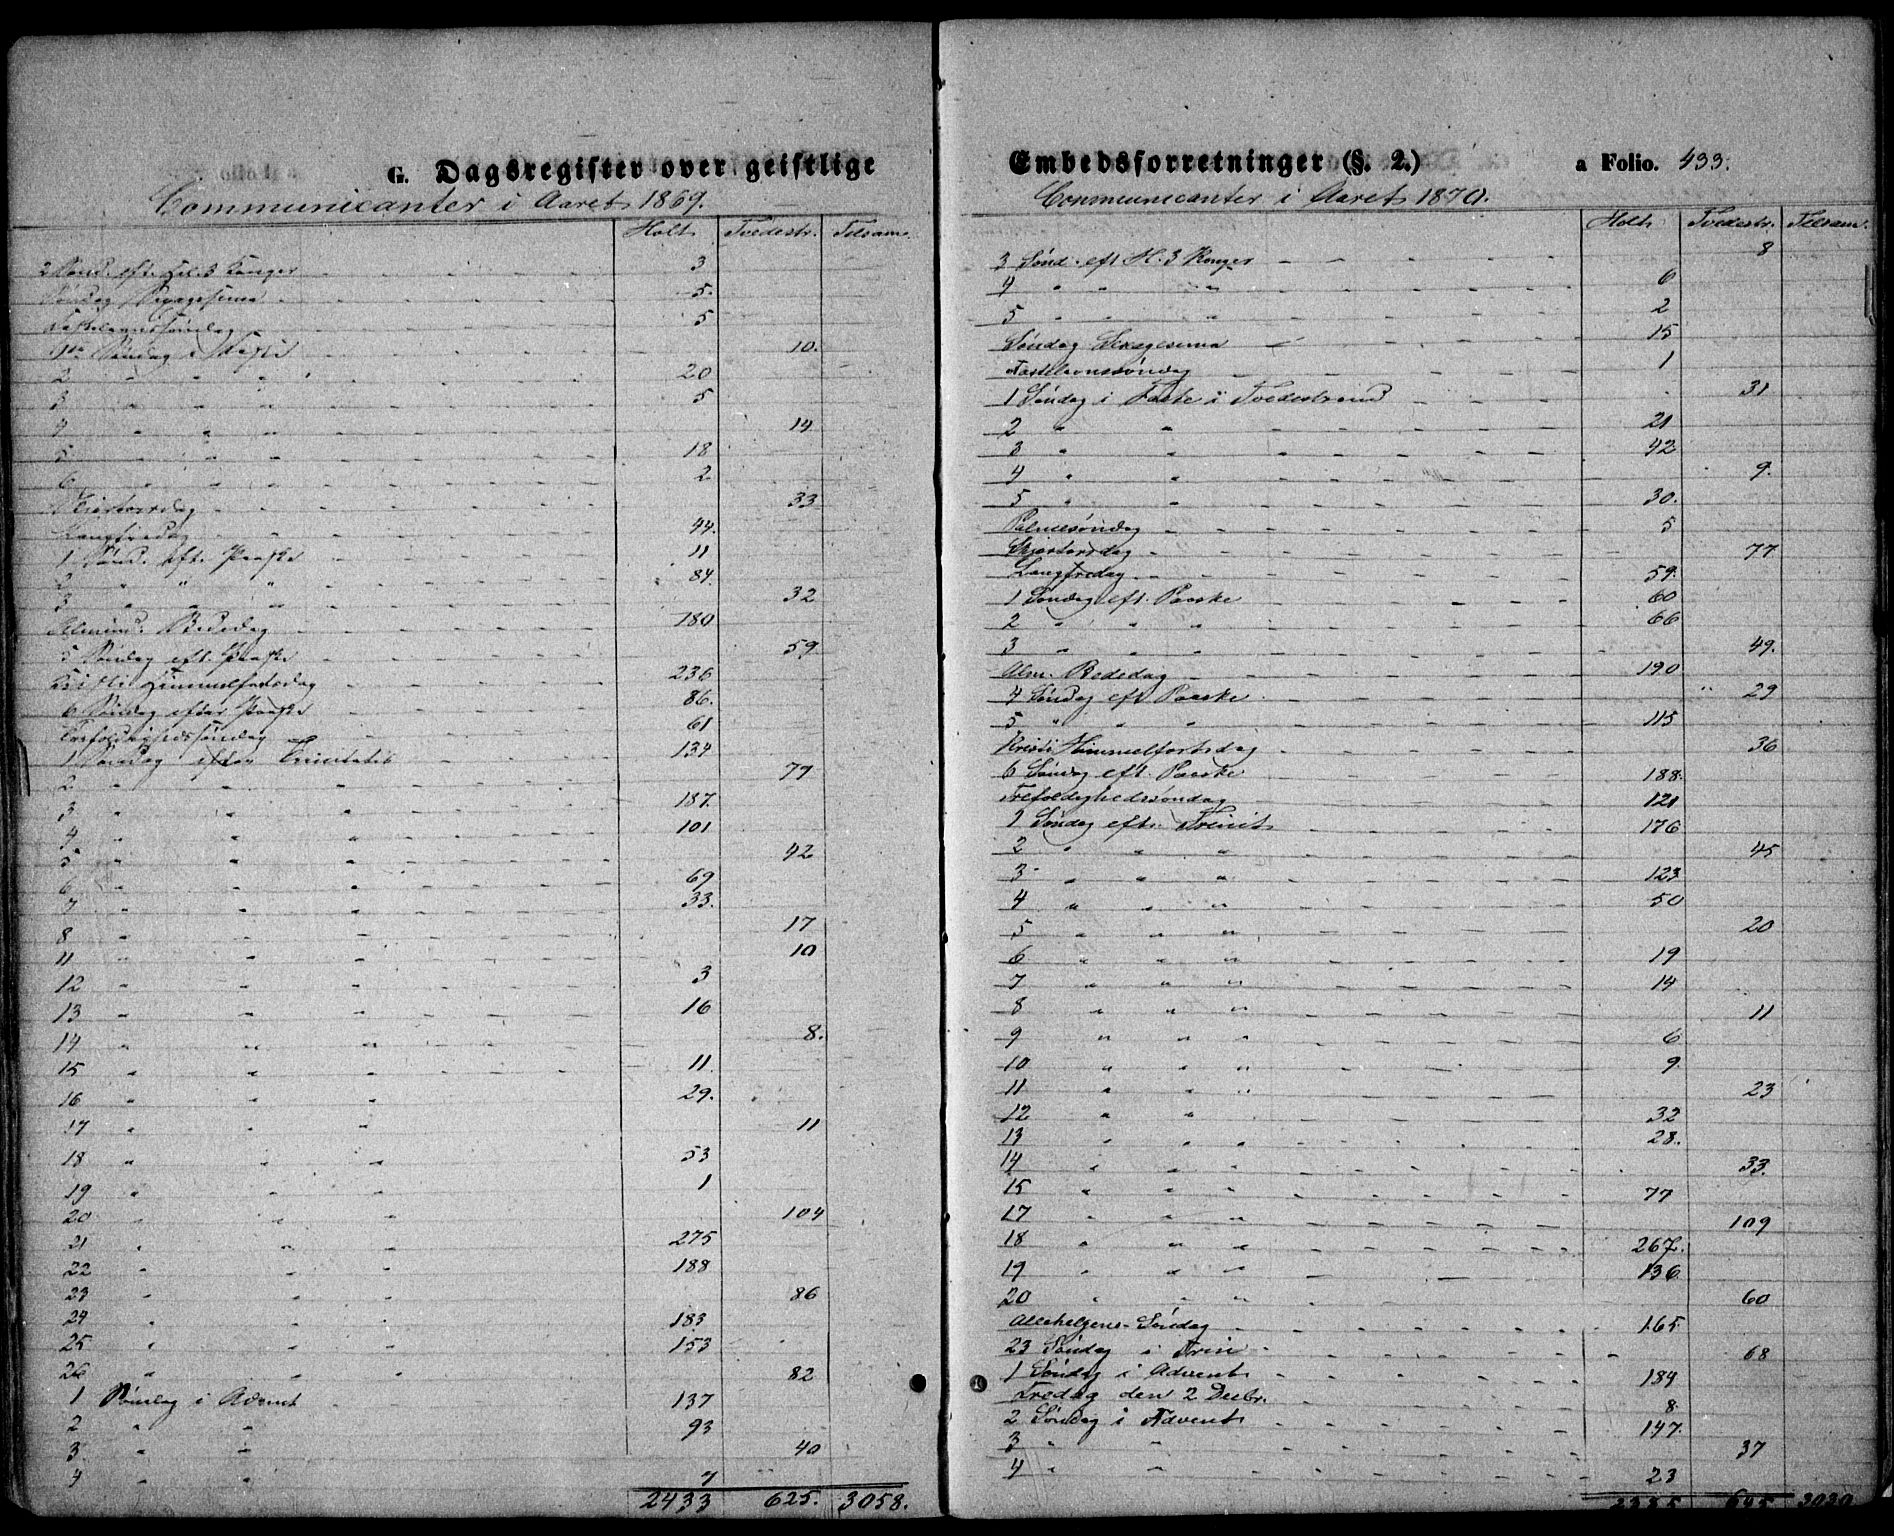 G. Dagsregister over geistlige
Communicanter i Aaret 1869.
Holt Tvedestr. Tilsam.
2 Sønd. eft. Hel. 3 Konger 3
Søndag Sexagesima 5.
Fastelavnssøndag 5
1ste Søndag i Faste 10.
2 " " " 20
3 " " " 5
4 " " " 14
5 " " " 18
6 " " " 2
Skjertorsdag 33
Langfredag 44.
1 Sønd. eft. Paaske 11
2 " " " 84.
3 " " " 32
Almind. Bededag 180
5 Søndag eft. Paaske 59.
Kristi Himmelfartsdag 236
6 Søndag efter Paaske 86.
Trefoldighedssøndag 61
1 Søndag efter Trinitatis 134
2 " " " 77
3 " " " 187.
4 " " " 101
5 " " " 42
6 " " " 69
7 " " " 33.
8 " " " 17
11 " " " 10
12 " " " 3
13 " " " 16
14 " " " 8.
15 " " " 11.
16 " " " 29.
17 " " " 11
18 " " " 53
19 " " " 1
20 " " " 104
21 " " " 275
22 " " " 188
23 " " " 86
24 " " " 183
25 " " " 153
26 " " " 82
1 Søndag i Advent 137
2 " " 93
3 " " 40
4 " " 7
2433 625. 3058.
Embedsforretninger (§. 2.) a Folio. 433.
Communicanter i Aaret 1870.
Holt Tvedestr. Tilsam.
3 Sønd. eft H. 3 Konger 8
4 " " " 6
5 " " " 2
Søndag Sexagesima 15
Fastelavnssøndag 1
1 Søndag i Faste i Tvedestrand 31
2 " " 21
3 " " 42
4 " " 9.
5 " " 30.
Palmesøndag 5
Skjertorsdag 77
Langfredag 59.
1 Søndag eft. Paaske 60
2 " " " 66
3 " " " 49.
Alm. Bededag 190
4 Søndag eft Paaske " 29
5 " " " 115
Kristi Himmelfartsdag 36
6 Søndag eft. Paaske 188.
Trefoldighedssøndag 121
1 Søndag eft. Trinit. 176
2 " " " 45
3 " " " 123
4 " " " 50
5 " " " 20
6 " " " 19
7 " " " 14
8 " " " 11
9 " " " 6
10 " " " 9.
11 " " " 23
12 " " 32
13 " " " 28.
14 " " " 33.
15 " " " 77
17 " " " 109
18 " " " 267.
19 " " " 136
20 " " " 60
Allehelgens-Søndag 165
23 Søndag i Trin 68
1 Søndg i Advent 184
Fredag den 2 Decbr. 8
2 Søndag i Advent 147.
3 " " 37
4 " " 23
2385 645 3030